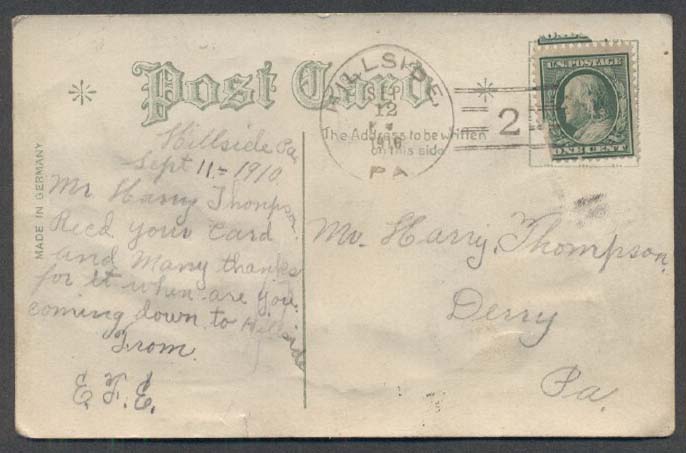 Post Card
HILLSIDE
SEP
12
1910
PA
2
U.S. POSTAGE
ONE CENT
The Address to be written
on this side
MADE IN GERMANY
Hillside Pa
Sept 11 - 1910
Mr Harry Thonpson.
Recd your Card
and Many thanks
for it when are you
coming down to Hillside
From
E. F. E.
Mr. Harry, Thompson,
Derry
Pa.